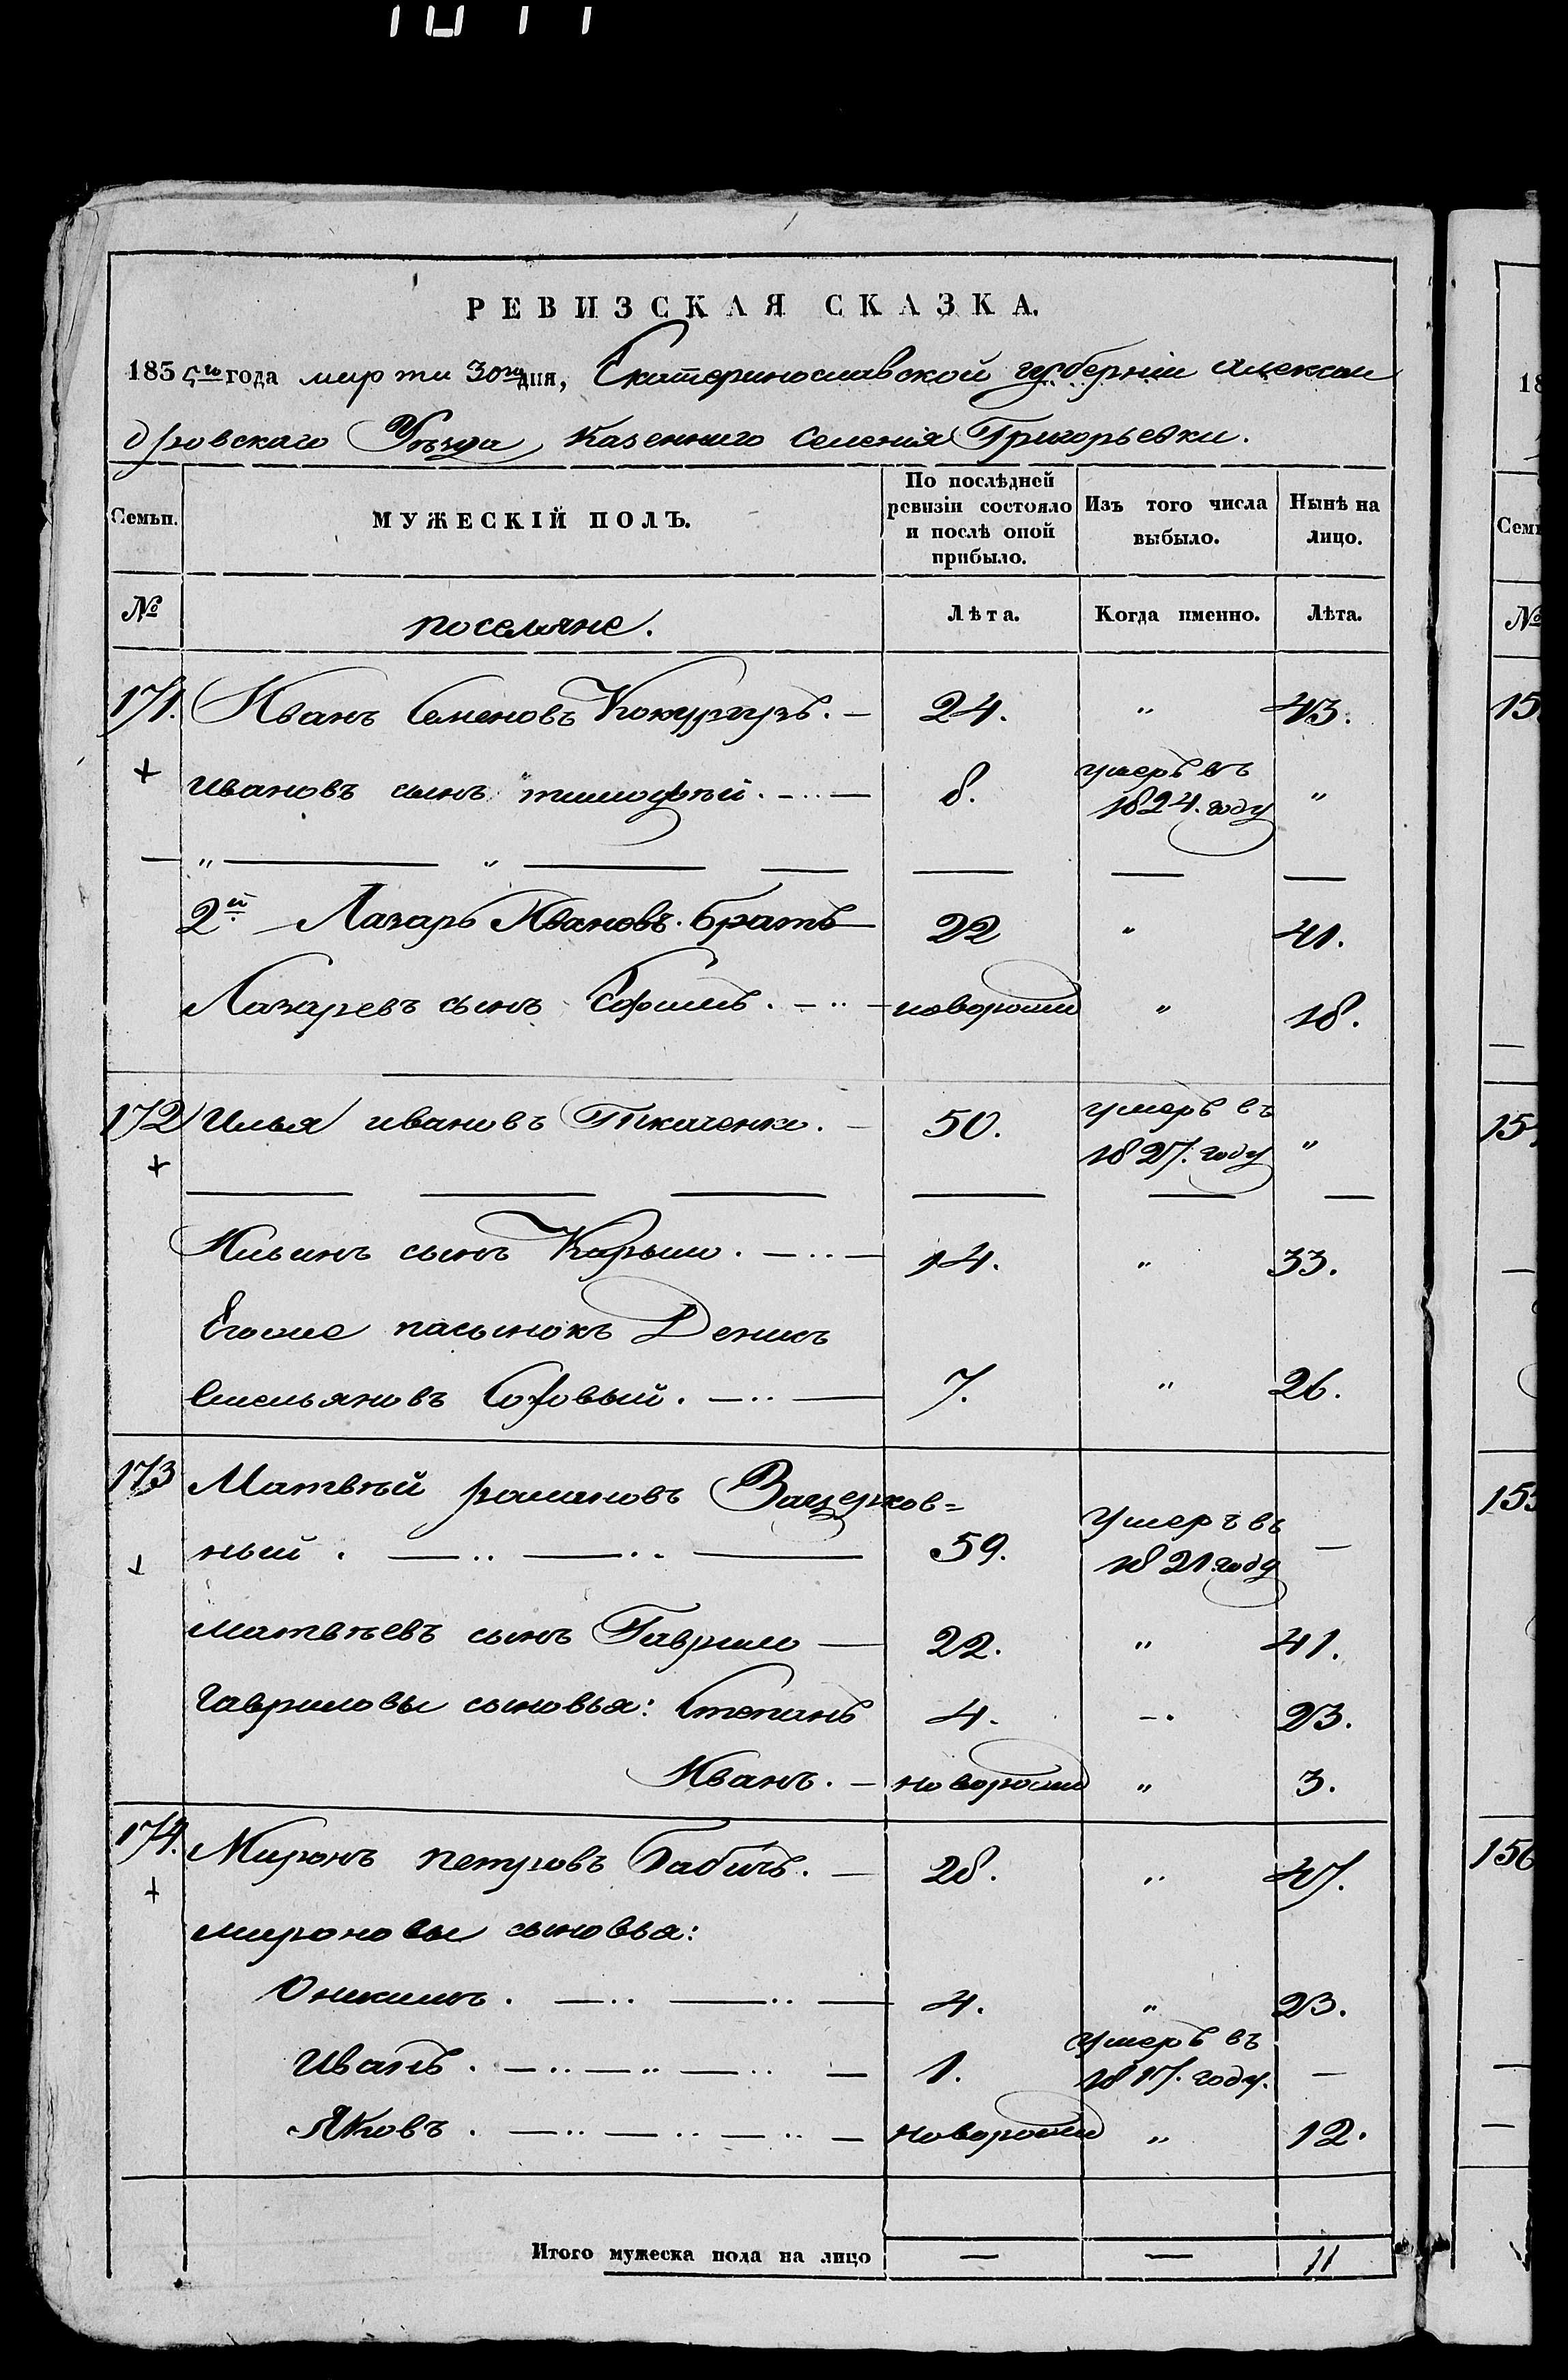 РЕВИЗСКАЯ СКАЗКА.
1835 го года марта 30го дня, Екатеринославской губерніи Алексан
дровскаго Уѣзда, Казеннаго Селенія Григорьевки.
Семьи. МУЖЕСКІЙ ПОЛЪ. По послѣдней ревизіи состояло и послѣ оной прибыло. Изъ того числа выбыло. Нынѣ на лицо.
№ поселяне. Лѣта. Когда именно. Лѣта.
171. Иванъ Семеновъ Кокургузъ. — 24. " 43.
Ивановъ сынъ тимофѣй. — 8. умеръ въ 1824. году "
2й Лазарь Ивановъ братъ — 22 " 41.
Лазаревъ сынъ Ефимъ. — новорожн " 18.
172 Илья ивановъ Ткаченко. — 50. умеръ въ 1827. году "
Ильинъ сынъ Карпъ. — 14. " 33.
Егоже пасынокъ Денисъ
Емельяновъ 7. " 26.
173 Матвѣй романовъ Зацерков=
ный. — 59. Умеръ въ 1821 году —
матвѣевъ сынъ Гаврило — 22. " 41.
Гавриловы сыновья: Степанъ 4. — 23.
Иванъ. — новорожн " 3.
174. Миронъ петровъ Бабичъ. — 28. " 47.
мироновы сыновья:
Оникимъ. — 4. " 23.
Иванъ. — 1. умеръ въ 1817. году. —
Яковъ. — новорожн " 12.
Итого мужеска пола на лицо — — 11